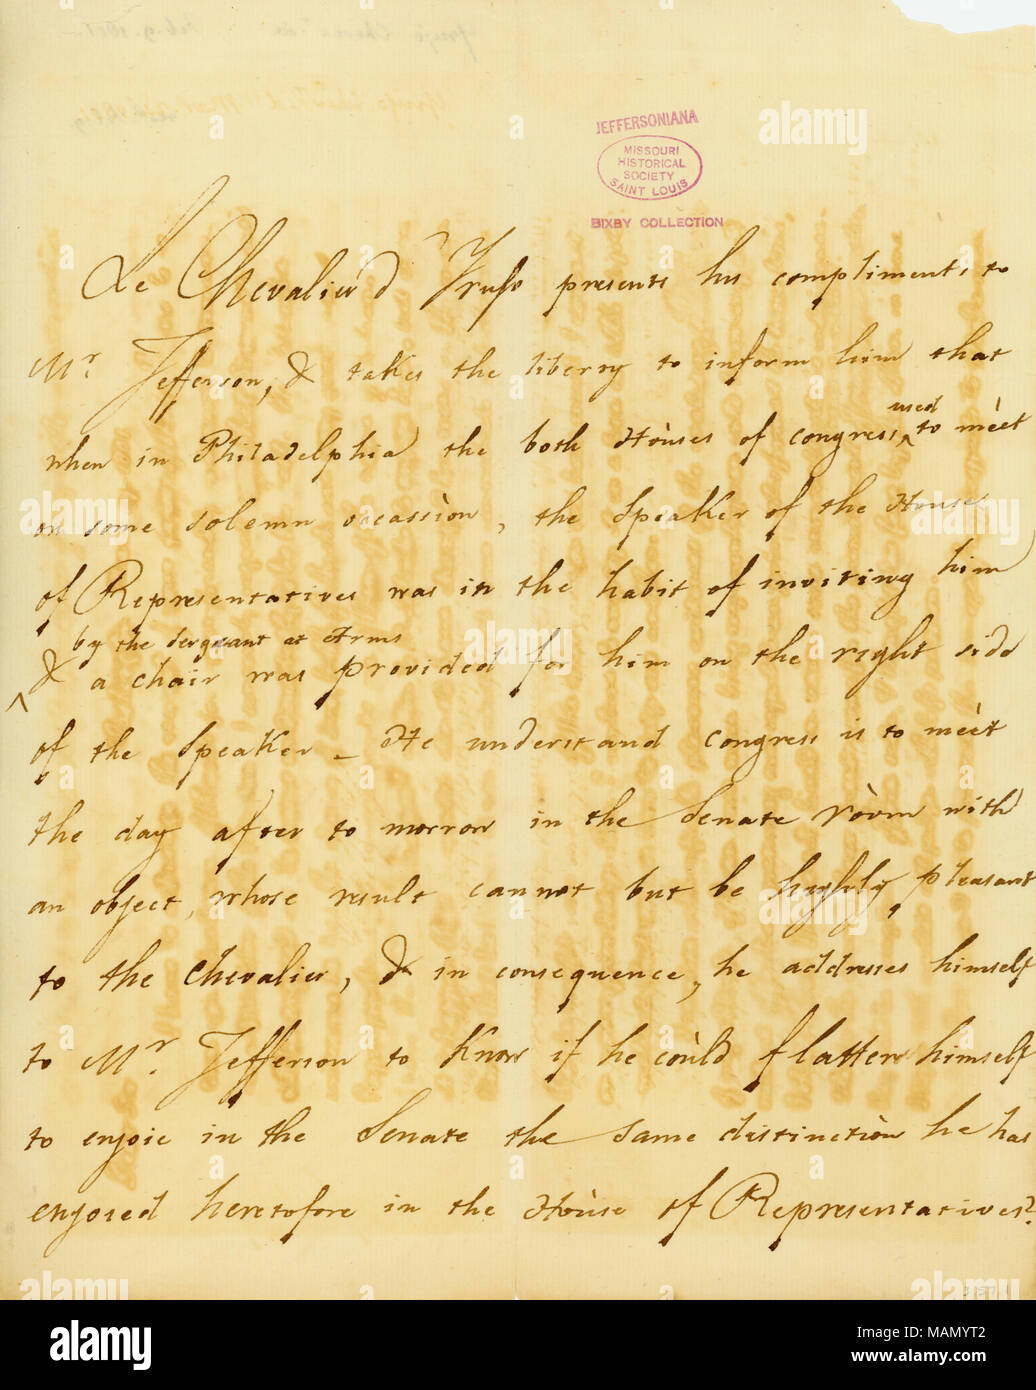 JEFFERSONIANA
MISSOURI
HISTORICAL
SOCIETY
SAINT LOUIS
BIXBY COLLECTION
Le Chevalier d'Yrujo presents his compliments to
Mr. Jefferson, & takes the liberty to inform him that
when in Philadelphia the both Hòuses of congress used to mèet
on some solemn occassiòn, the Speaker of the House
of Representatives was in the habit of inviting him
by the Sergeant at Arms
& a chair was provided for him on the right side
of the Speaker - He understand congress is to mèet
the day after to morrow in the Senate ròom with
an object, whose result cannot but be highly pleasant
to the Chevalier, & in consequence, he addresses himself
to Mr. Jefferson to Know if he coùld flatter himself
to enjoie in the Senate the same distinctiòn he has
enjoied heretofore in the Hòuse of Representatives?
alamy
Image ID: MAMYT2
www.alamy.com